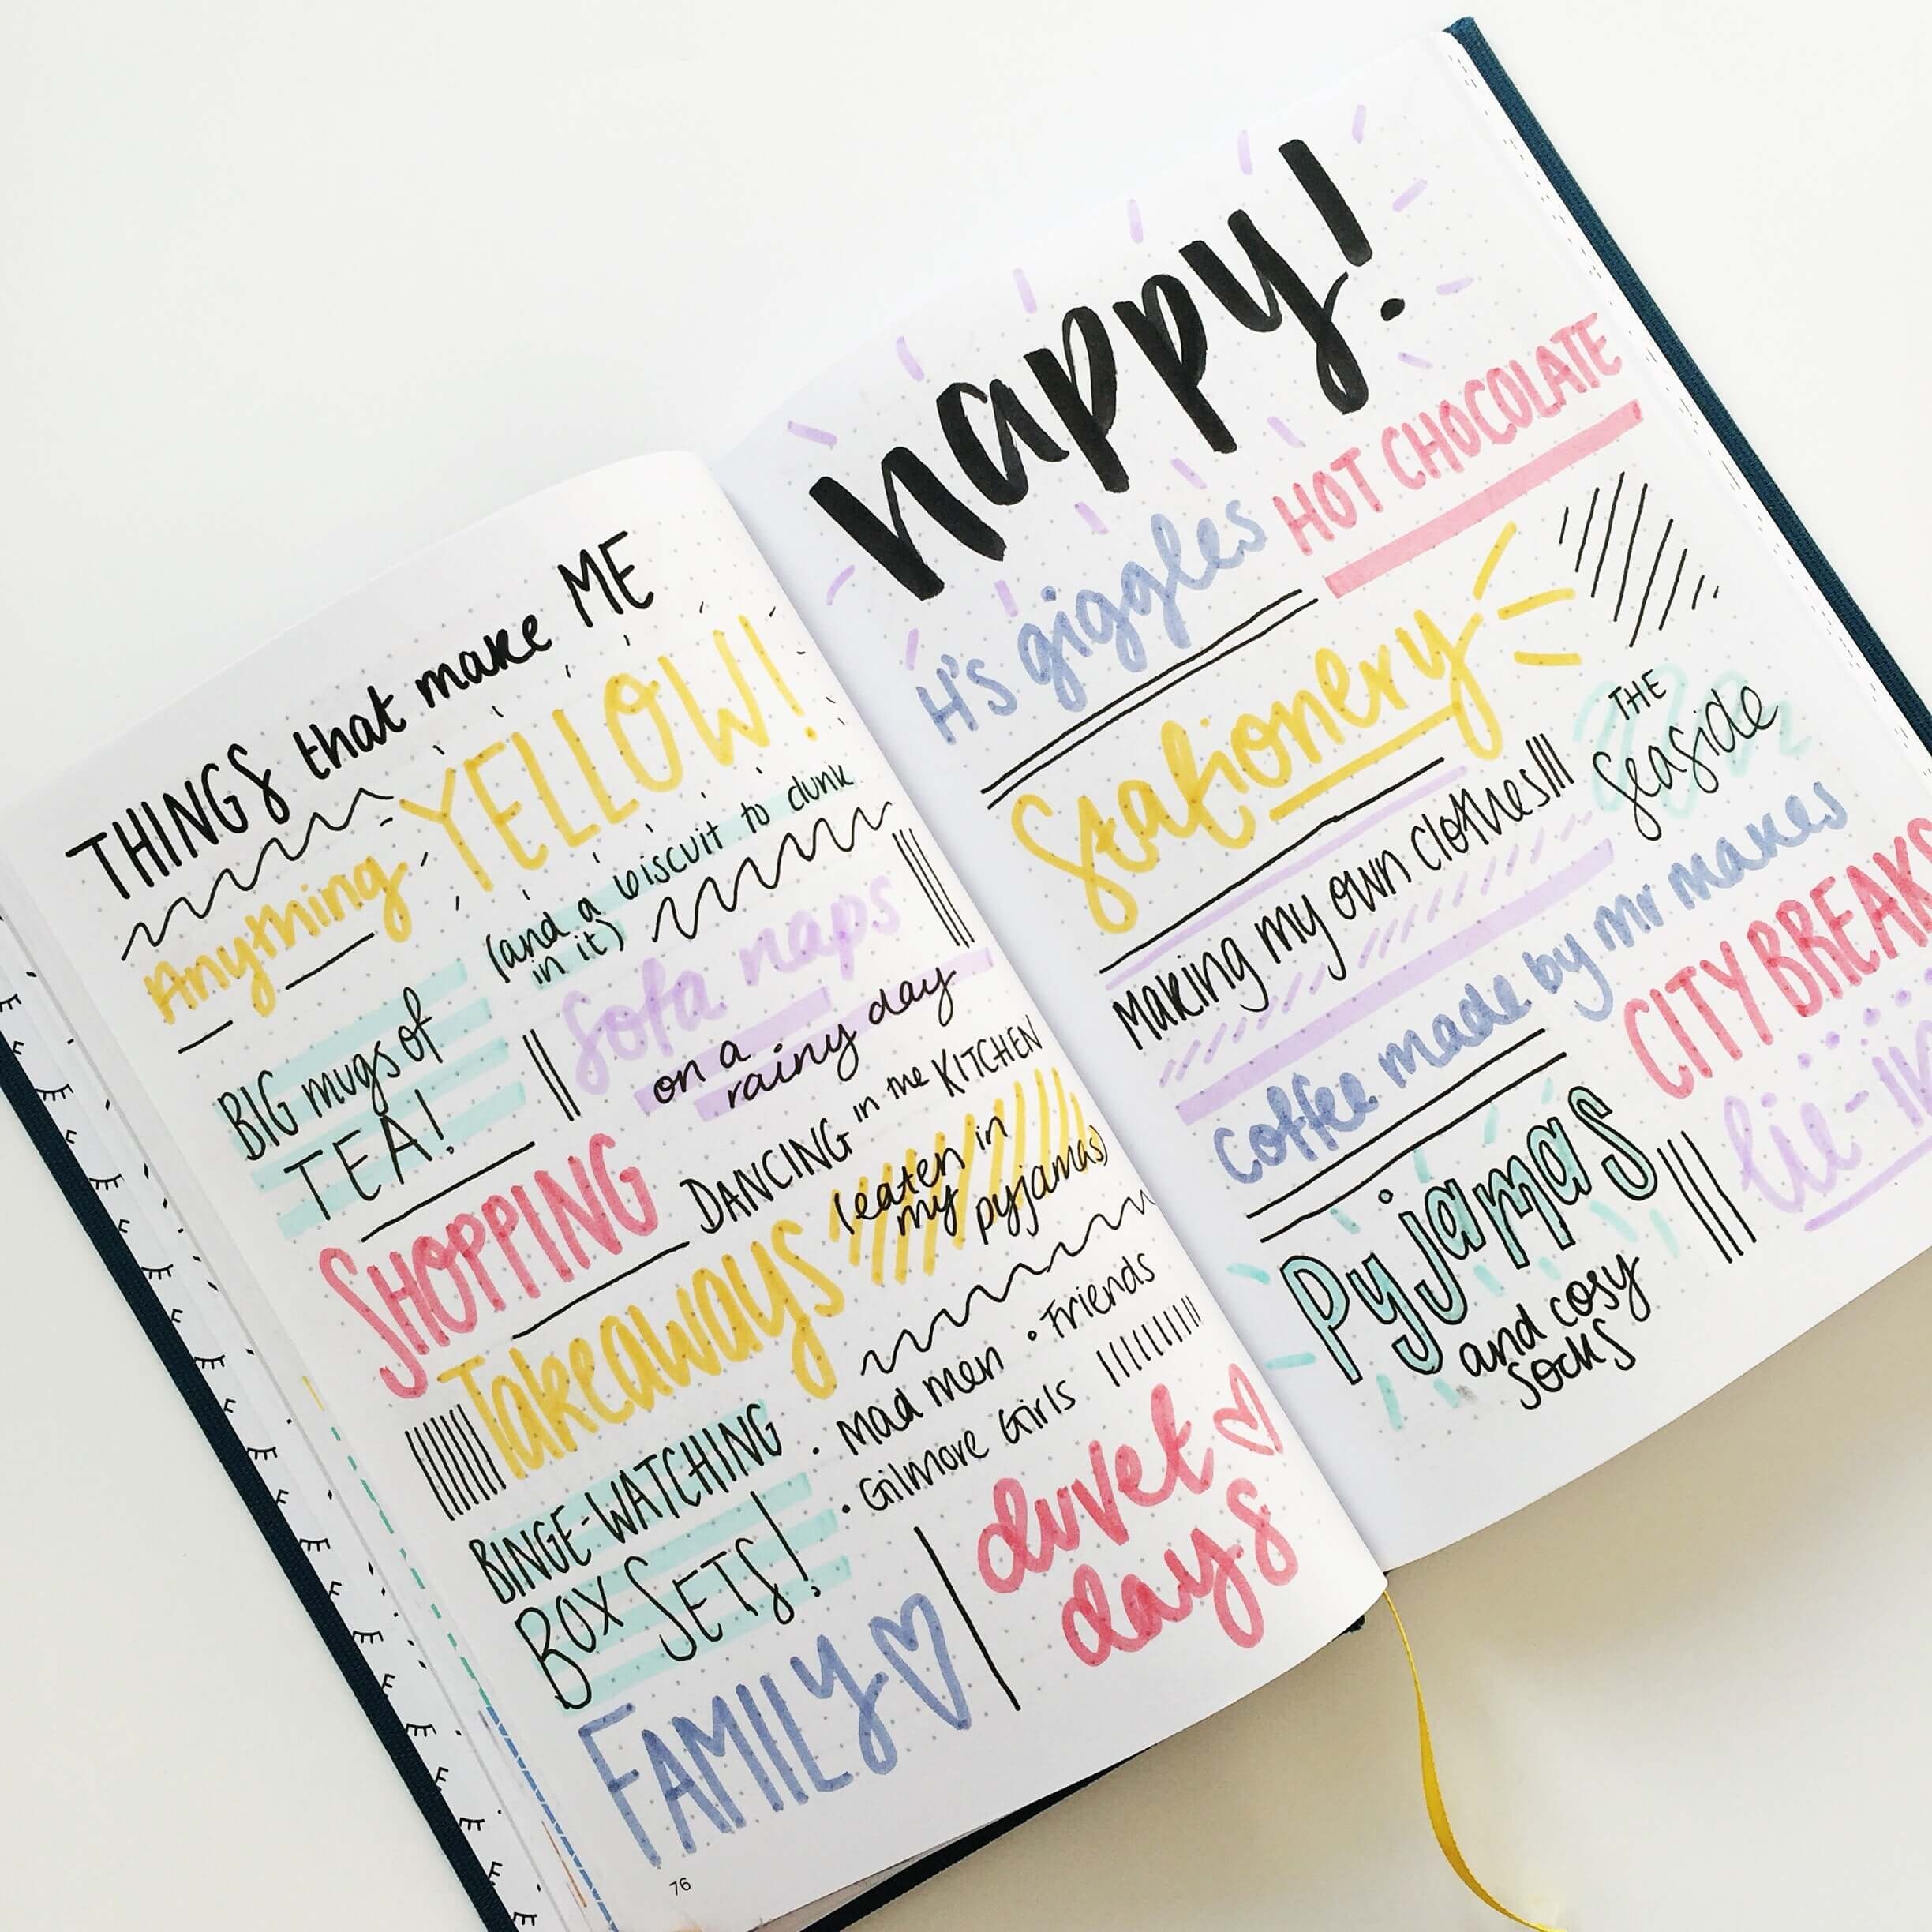 THINGS that make ME
Anything YELLOW!
BIG mugs of
TEA!
(and a biscuit to dunk
in it)
Sofa naps
on a
rainy day
SHOPPING
DANCING in the KITCHEN
Takeaways
(eaten in
my pyjamas)
BINGE-WATCHING
BOX SETS!
• Mad men • Friends
• Gilmore Girls
FAMILY
duvet
days
76
happy!
H's giggles
HOT CHOCOLATE
Stationery
THE
Seaside
Making my own clothes
Coffee made by Mr Makes
CITY BREAKS
Pyjamas
and cosy
socks